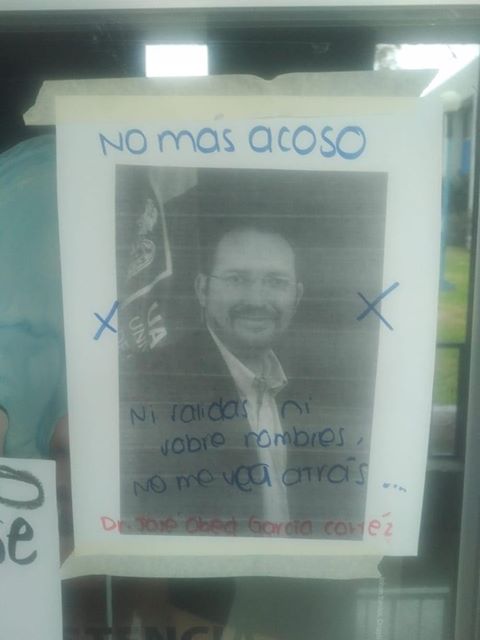 NO MÁS ACOSO
UA
UNI
Ni salidas, ni
sobre nombres,
NO me vea atrás...
Dr. José Obed García Cortéz
O
se
TENCI